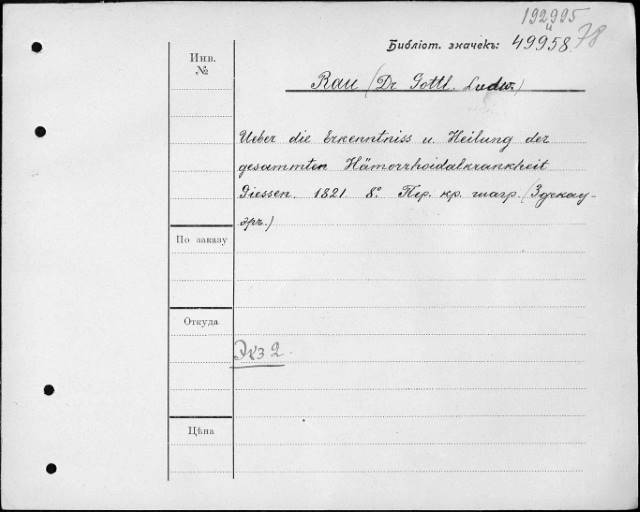 192995
и
Библіот. значекъ: 49958 78
Инв.
№
Rau (Dr Gottl. Ludw.)
Ueber die Erkenntniss u. Heilung der
gesammten Hämorrhoidalkrankheit
Giessen. 1821. 8°. Пер. кр. шагр. (Здекау-
эръ.)
По заказу
Откуда
Экз 2.
Цѣна